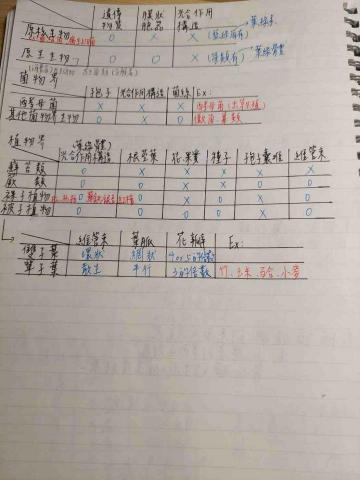 遺傳 膜狀 光合作用
物質 胞器 構造
原核生物 O X X (藍綠菌有) 葉綠素
原生生物 O O X (藻類有) 葉綠體
菌物界
孢子 光合作用構造 菌絲 Ex:
酵母菌 X X X 酵母菌(出芽生殖)
其他菌物界生物 O X O 黴菌、蕈類
植物界 (葉綠體)
光合作用構造 根莖葉 花、果實 種子 孢子囊堆 維管束
蘚苔類 O X X X X X
蕨類 O O X X O O
裸子植物 O O X O X O
被子植物 O O O O X O
維管束 葉脈 花瓣 Ex:
雙子葉 環狀 網狀 4 or 5的倍數
單子葉 散生 平行 3的倍數 竹、玉米、百合、小麥